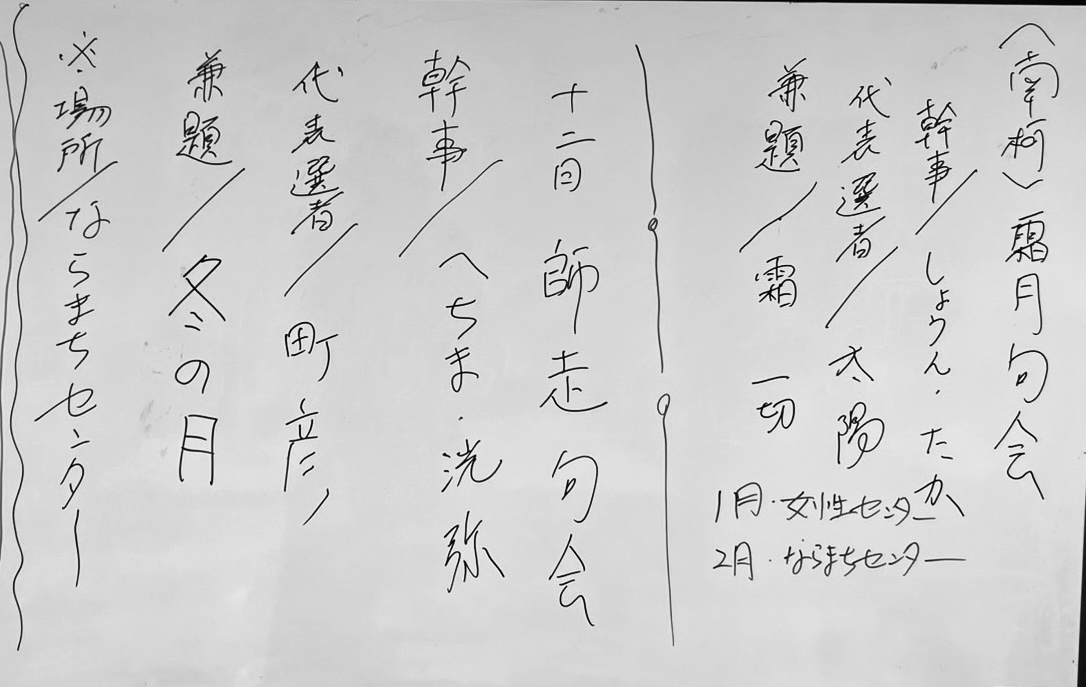 〈南柯〉霜月句会
幹事/しょうん・たか
代表選者/太陽
兼題/霜一切
1月・女性センター
2月・ならまちセンター
十二回 師走句会
幹事/へちま・洸弥
代表選者/町彦
兼題/冬の月
※場所/ならまちセンター